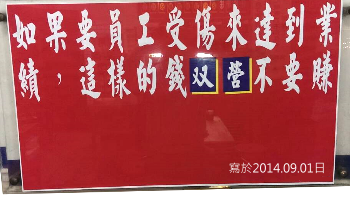 如果要員工受傷來達到業
績，這樣的錢双营不要賺
寫於2014.09.01日